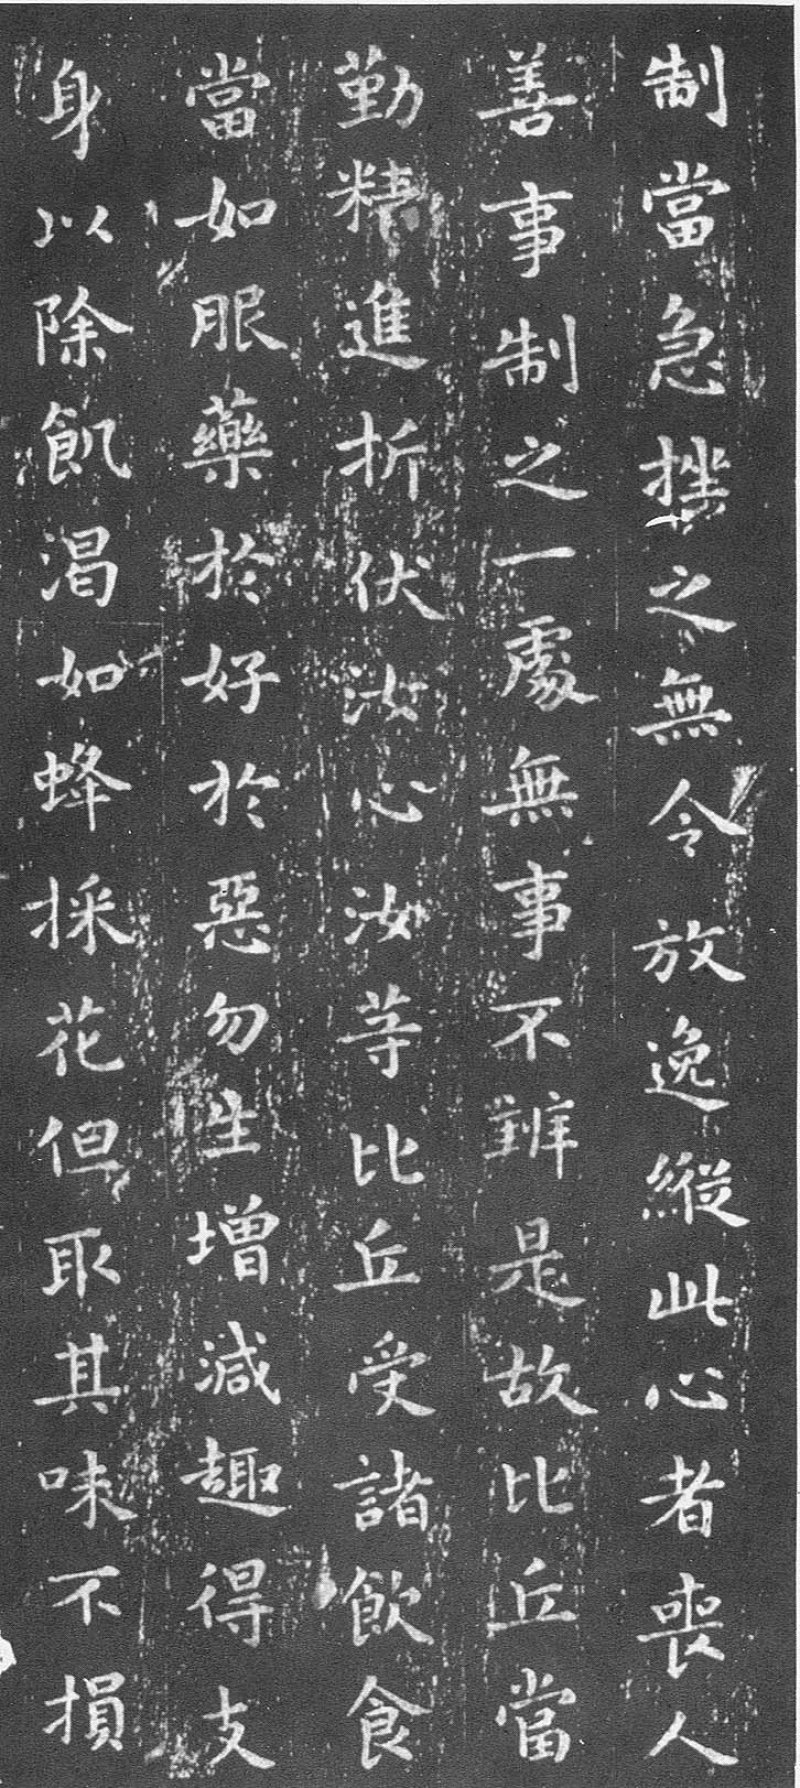 制當急挫之無令放逸縱此心者喪人
善事制之一處無事不辦是故比丘當
勤精進折伏汝心汝等比丘受諸飲食
當如服藥於好於惡勿生增減趣得支
身以除飢渴如蜂採花但取其味不損